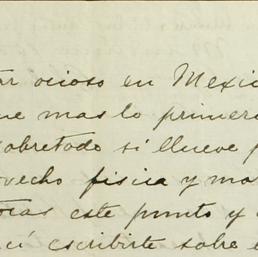 ar ocioso en Mexic
ue mas lo primer
sobretodo si llueve p
ovecho fisica y mo
este punto y
cí escribirte sobre e